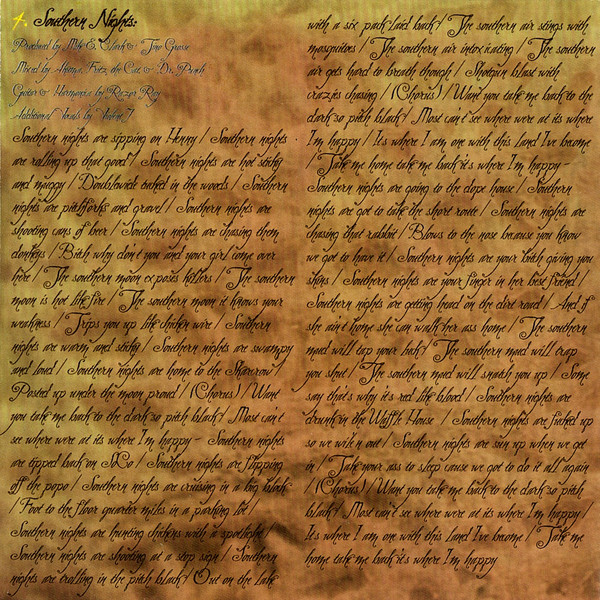 4. Southern Nights:
Produced by Mike E. Clark & Tino Grosse
Mixed by Akuma, Fritz the Cat & Dr. Punch
Guitar & Harmonica by Razor Ray
Additional Vocals by
Southern nights are sipping on Henny / Southern nights
are rolling up that good / Southern nights are hot sticky
and muggy / Doublewide tucked in the woods / Southern
nights are pitchforks and gravel / Southern nights are
shooting cans of beer / Southern nights are chasing them
donkeys / Bitch why don't you and your girl come over
here / The southern moon exposes killers / The southern
moon is hot like fire / The southern moon it knows your
weakness / Trips you up like chicken wire / Southern
nights are warm and sticky / Southern nights are swampy
and loud / Southern nights are home to the Sharecrow /
Posted up under the moon proud / (Chorus) / Want
you take me back to the dark so pitch black / Most can't
see where were at its where I'm happy - Southern nights
are tipped back on SoCo / Southern nights are flipping
off the popo / Southern nights are cruising in a big block
/ Foot to the floor quarter miles in a parking lot /
Southern nights are hunting chickens with a spotlight /
Southern nights are shooting at a stop sign / Southern
nights are trolling in the pitch black / Out on the lake
with a six pack laid back / The southern air stings with
mosquitoes / The southern air intoxicating / The southern
air gets hard to breath though / Shotgun blast with
crazies chasing / (Chorus) / Want you take me back to the
dark so pitch black / Most can't see where were at its where
I'm happy / Its where I am one with this land I've become
/ Take me home take me back its where I'm happy -
Southern nights are going to the dope house / Southern
nights are got to take the short route / Southern nights are
chasing that rabbit / Blows to the nose because you know
we got to have it / Southern nights are your bitch giving you
skins / Southern nights are your finger in her best friend /
Southern nights are getting head on the dirt road / And if
she ain't home she can walk her ass home / The southern
mud will tap your / The southern mud will trap
you shut / The southern mud will snatch you up / Some
say that's why its red like blood / Southern nights are
drunk in the Waffle House / Southern nights are
so we with n out / Southern nights are sun up when we get
in / Take your ass to sleep cause we got to do it all again
/ (Chorus) / Want you take me back to the dark so pitch
black / Most can't see where were at its where I'm happy /
Its where I am one with this land I've become / Take me
home take me back its where I'm happy